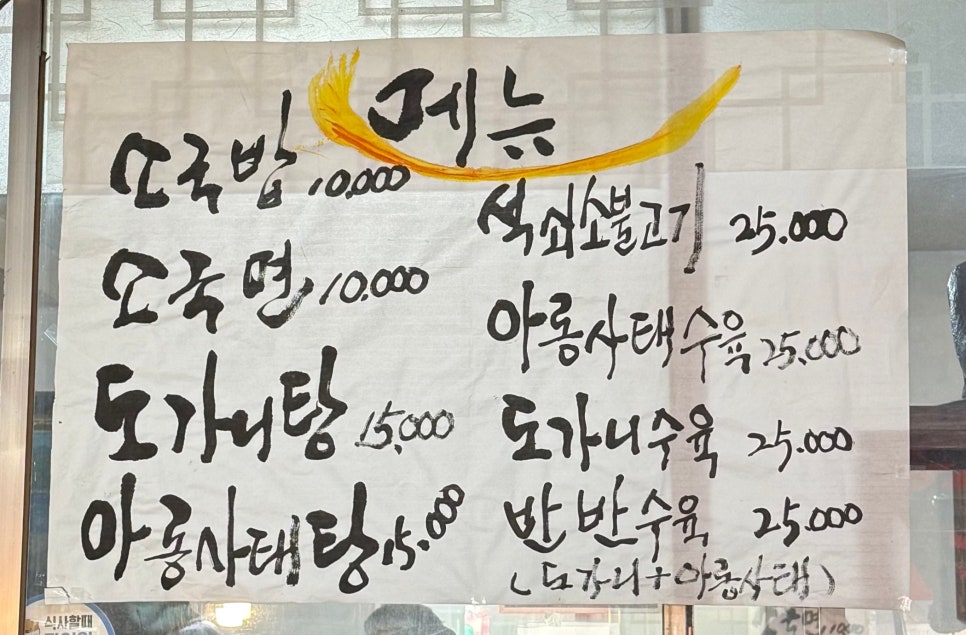 메뉴
소국밥 10,000
소국면 10,000
도가니탕 15,000
아롱사태탕 15,000
석쇠소불고기 25.000
아롱사태수육 25,000
도가니수육 25.000
반반수육 25.000
(도가니+아롱사태)
식사할때